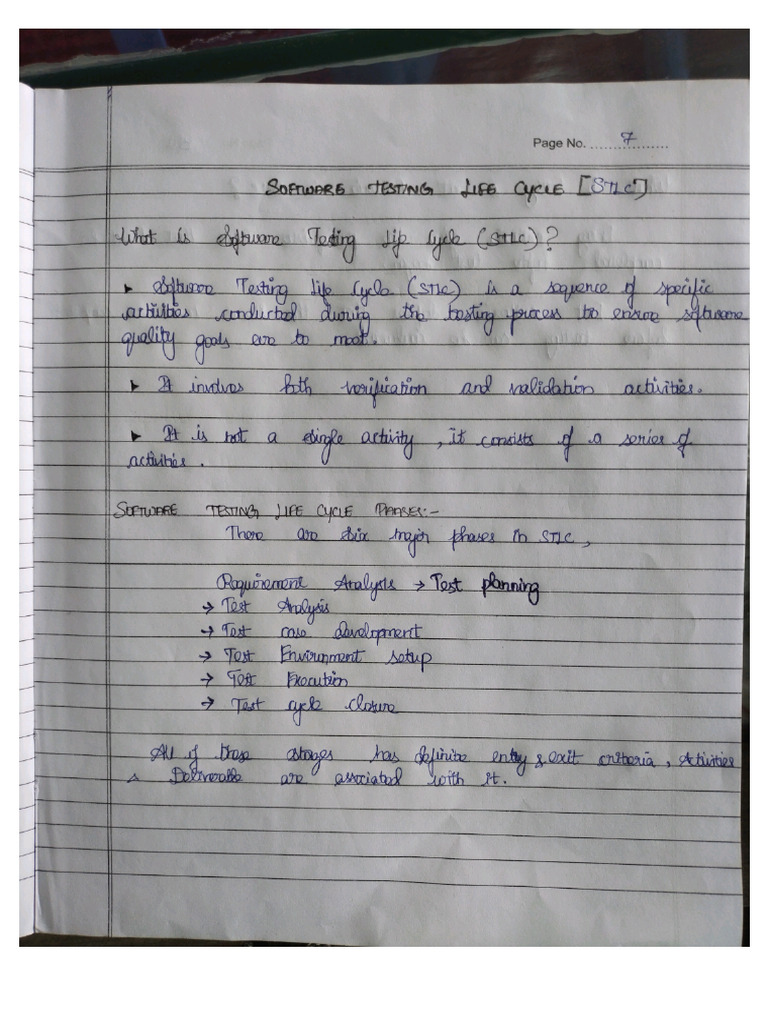 Page No. 7
SOFTWARE TESTING LIFE CYCLE [STLC]
What is Software Testing Life Cycle (STLC)?
➤ Software Testing Life Cycle (STLC) is a sequence of specific
activities conducted during the testing process to ensure software
quality goals are to meet.
➤ It involves both verification and validation activities.
➤ It is not a single activity, it consists of a series of
activities.
SOFTWARE TESTING LIFE CYCLE PHASES:-
There are six major phases in STLC,
Requirement Analysis → Test planning
→ Test Analysis
→ Test case development
→ Test Environment setup
→ Test Execution
→ Test cycle closure
All of these stages has definite entry & exit criteria, Activities
& Deliverable are associated with it.